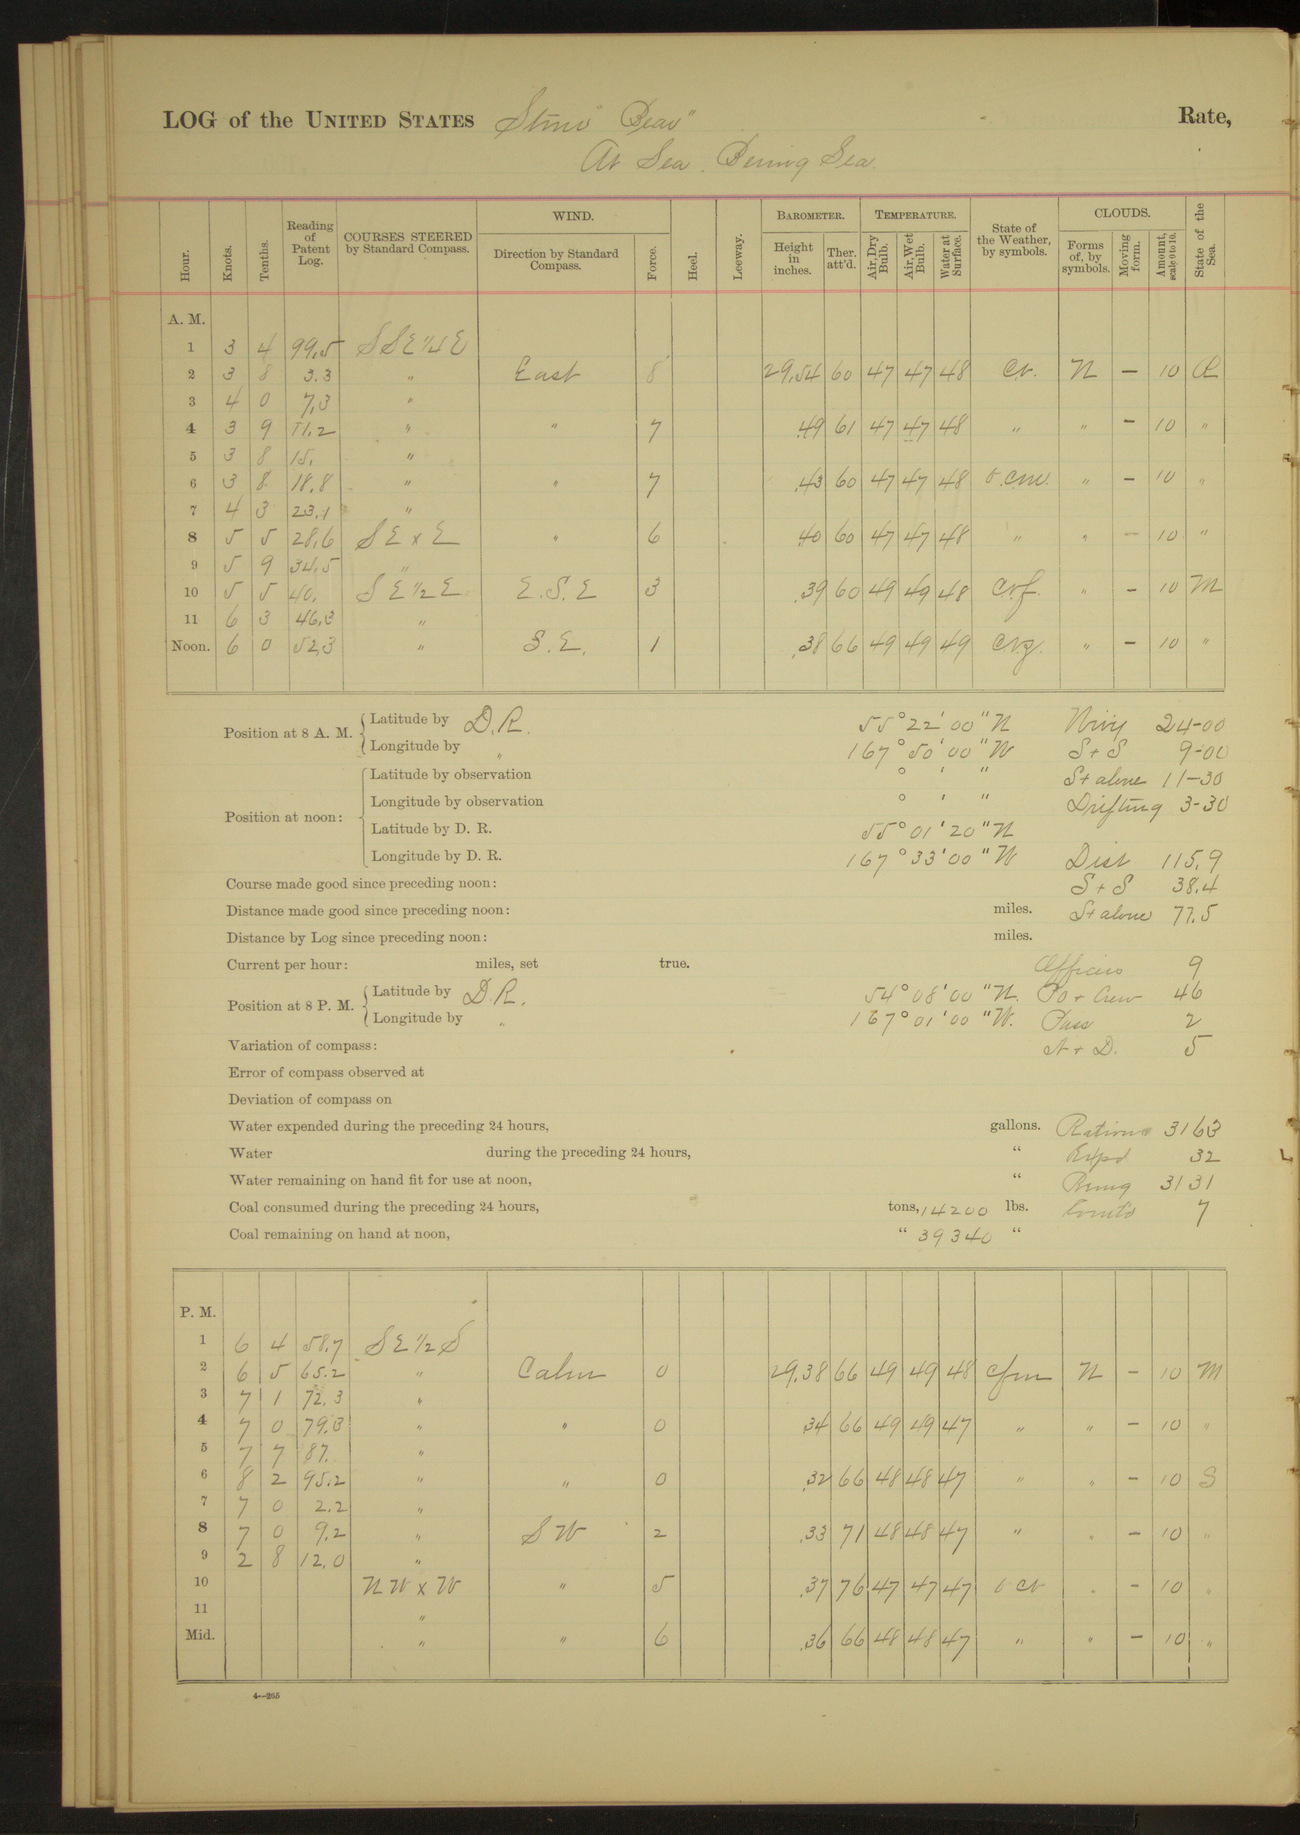 LOG of the UNITED STATES Stmr "Bear" Rate,
At Sea. Bering Sea.
Hour. Knots. Tenths. Reading of Patent Log. COURSES STEERED by Standard Compass. WIND. Direction by Standard Compass. Force. Heel. Leeway. BAROMETER. Height in inches. Ther. att'd. TEMPERATURE. Air, Dry Bulb. Air, Wet Bulb. Water at Surface. State of the Weather, by symbols. CLOUDS. Forms of, by symbols. Moving form. Amount, scale 0 to 10. State of the Sea.
A. M.
1 3 4 99.5 SSE 1/4 E
2 3 8 3.3 " East 8 29.54 60 47 47 48 cr. N — 10 R
3 4 0 7.3 "
4 3 9 11.2 " " 7 .49 61 47 47 48 " " — 10 "
5 3 8 15. "
6 3 8 18.8 " " 7 .43 60 47 47 48 o.cm. " — 10 "
7 4 3 23.1 "
8 5 5 28.6 SE x E " 6 40 60 47 47 48 " " — 10 "
9 5 9 34.5 "
10 5 5 40. SE 1/2 E E.S.E 3 .39 60 49 49 48 crf. " — 10 M
11 6 3 46.3 "
Noon. 6 0 52.3 " S.E. 1 .38 66 49 49 49 " — 10 "
Position at 8 A. M. Latitude by D.R. 55° 22' 00" N 24-00
Longitude by " 167° 50' 00" W S+S 9-00
Position at noon: Latitude by observation ° ' " St alone 11-30
Longitude by observation ° ' " Drifting 3-30
Latitude by D. R. 55° 01' 20" N
Longitude by D. R. 167° 33' 00" W Dist 115.9
Course made good since preceding noon: S+S 38.4
Distance made good since preceding noon: miles. St alone 77.5
Distance by Log since preceding noon: miles.
Current per hour: miles, set true. Officers 9
Position at 8 P. M. Latitude by D.R. 54° 08' 00" N. PO + Crew 46
Longitude by " 167° 01' 00" W. Pass 2
Variation of compass: A + D. 5
Error of compass observed at
Deviation of compass on
Water expended during the preceding 24 hours, gallons. Rations 3163
Water during the preceding 24 hours, " Expd 32
Water remaining on hand fit for use at noon, " Remg 3131
Coal consumed during the preceding 24 hours, tons, 14200 lbs. 7
Coal remaining on hand at noon, " 39340 "
P. M.
1 6 4 58.7 SE 1/2 S
2 6 5 65.2 " Calm 0 29.38 66 49 49 48 cfm N — 10 M
3 7 1 72.3 "
4 7 0 79.3 " " 0 .34 66 49 49 47 " " — 10 "
5 7 7 87. "
6 8 2 95.2 " " 0 .32 66 48 48 47 " " — 10 S
7 7 0 2.2 "
8 7 0 9.2 " SW 2 .33 71 48 48 47 " " — 10 "
9 2 8 12.0 "
10 NW x W " 5 .37 76 47 47 47 " — 10 "
11 "
Mid. " " 6 .36 66 48 48 47 " " — 10 "
4—265